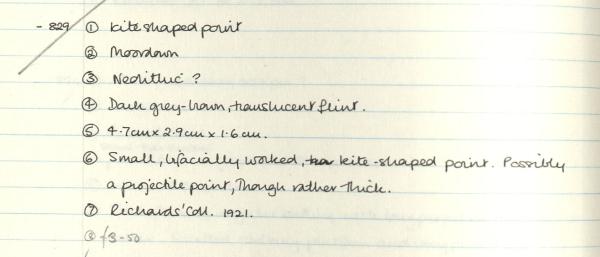 - 829 ① Kite shaped point
② Moordown
③ Neolithic ?
④ Dark grey-brown, translucent flint.
⑤ 4.7cm x 2.9cm x 1.6cm.
⑥ Small, bifacially worked, kite-shaped point. Possibly
a projectile point, Though rather thick.
⑦ Richards' Coll. 1921.
⑧ £3-50